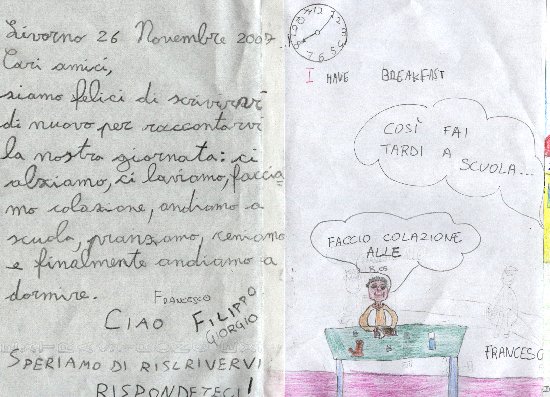 Livorno 26 Novembre 2007
Cari amici,
siamo felici di scrivervi
di nuovo per raccontarvi
la nostra giornata: ci
alziamo, ci laviamo, faccia=
mo colazione, andiamo a
scuola, pranziamo, ceniamo
e finalmente andiamo a
dormire.
FRANCESCO
CIAO FILIPPO
GIORGIO
SPERIAMO DI RISCRIVERVI
RISPONDETECI!
I HAVE BREAKFAST
COSÌ FAI
TARDI A
SCUOLA...
FACCIO COLAZIONE
ALLE
8.05
FRANCESC